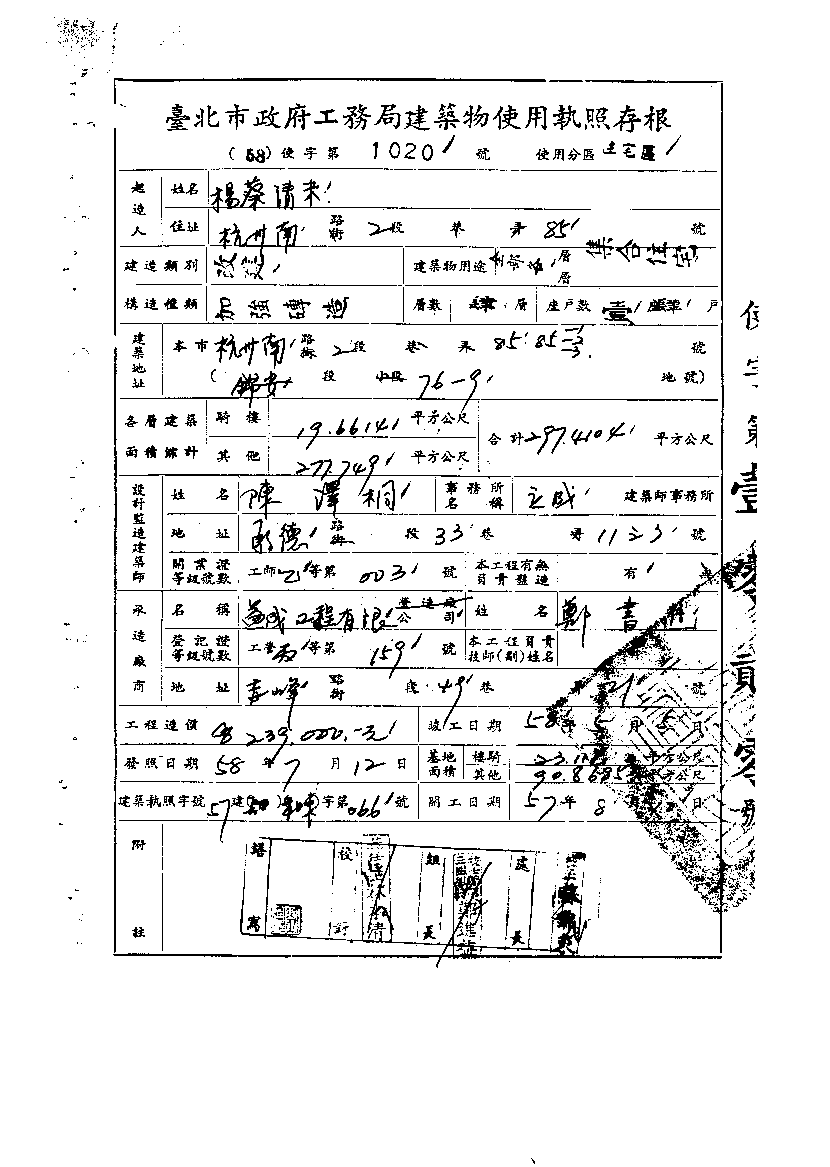 臺北市政府工務局建築物使用執照存根
(58)使字第 1020 號 使用分區 住宅區
起造人 姓名 楊蔡清未
住址 杭州南 路街 2段 巷 弄 85 號
建造類別 改 建築物用途 層層 集合住宅
構造種類 加強磚造 層數 肆 層 座戶數 壹 座 肆 戶
建築地址 本市 杭州南 路街 2段 巷 弄 85.85 號
( 錦安 段 小段 76-9 地號)
各層建築面積總計 騎樓 19.6614 平方公尺 合計 297.4104 平方公尺
其他 277.749 平方公尺
設計監造建築師 姓名 陳澤桐 事務所名稱 立成 建築師事務所
地址 德 路街 段 33 巷 弄 號
開業證等級號數 工師 乙 等第 003 號 本工程有無負責監造 有 無
承造廠商 名稱 益成工程有限 營造廠公司 姓名 鄭書
登記證等級號數 工營 丙 等第 159 號 本工程負責技師(副)姓名
地址 路街 段 49 巷 21 號
工程造價 239,000.- 竣工日期 58年 5月 5日
發照日期 58年 7月 12日 基地面積 樓騎 平方公尺
其他 90.8685 平方公尺
建築執照字號 57建 字第 066 號 開工日期 57年 8月 日
附註
繕寫 校對 組長 處長
使字第壹零貳零號